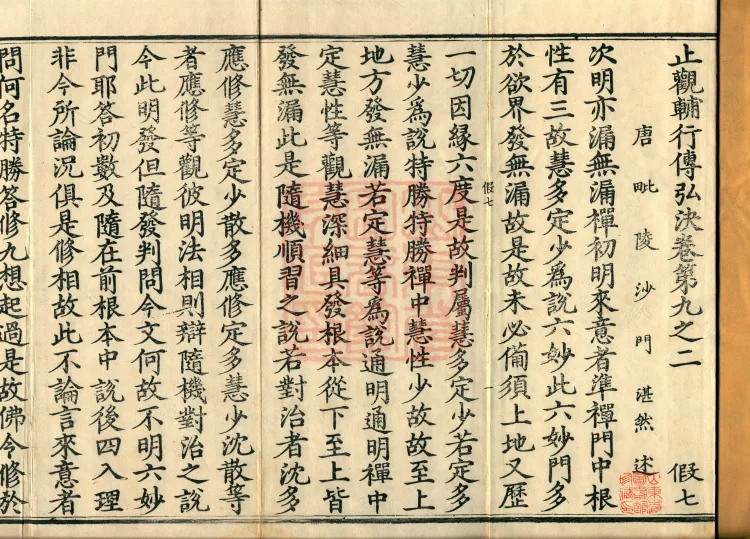 止觀輔行傳弘決卷第九之二 假七
唐毗陵沙門湛然述
次明亦漏無漏禪初明來意者準禪門中根
性有三故慧多定少為說六妙此六妙門多
於欲界發無漏故是故未必備須上地又歷
假七 一
一切因緣六度是故判屬慧多定少若定多
慧少為說特勝特勝禪中慧性少故故至上
地方發無漏若定慧等為說通明通明禪中
定慧性等觀慧深細具發根本從下至上皆
發無漏此是隨機順習之說若對治者沈多
應修慧多定少散多應修定多慧少沈散等
者應修等觀彼明法相則辯隨機對治之說
今此明發但隨發判問今文何故不明六妙
門耶答初數及隨在前根本中說後四入理
非今所論況俱是修相故此不論言來意者
問何名特勝答修九想起過是故佛令修於